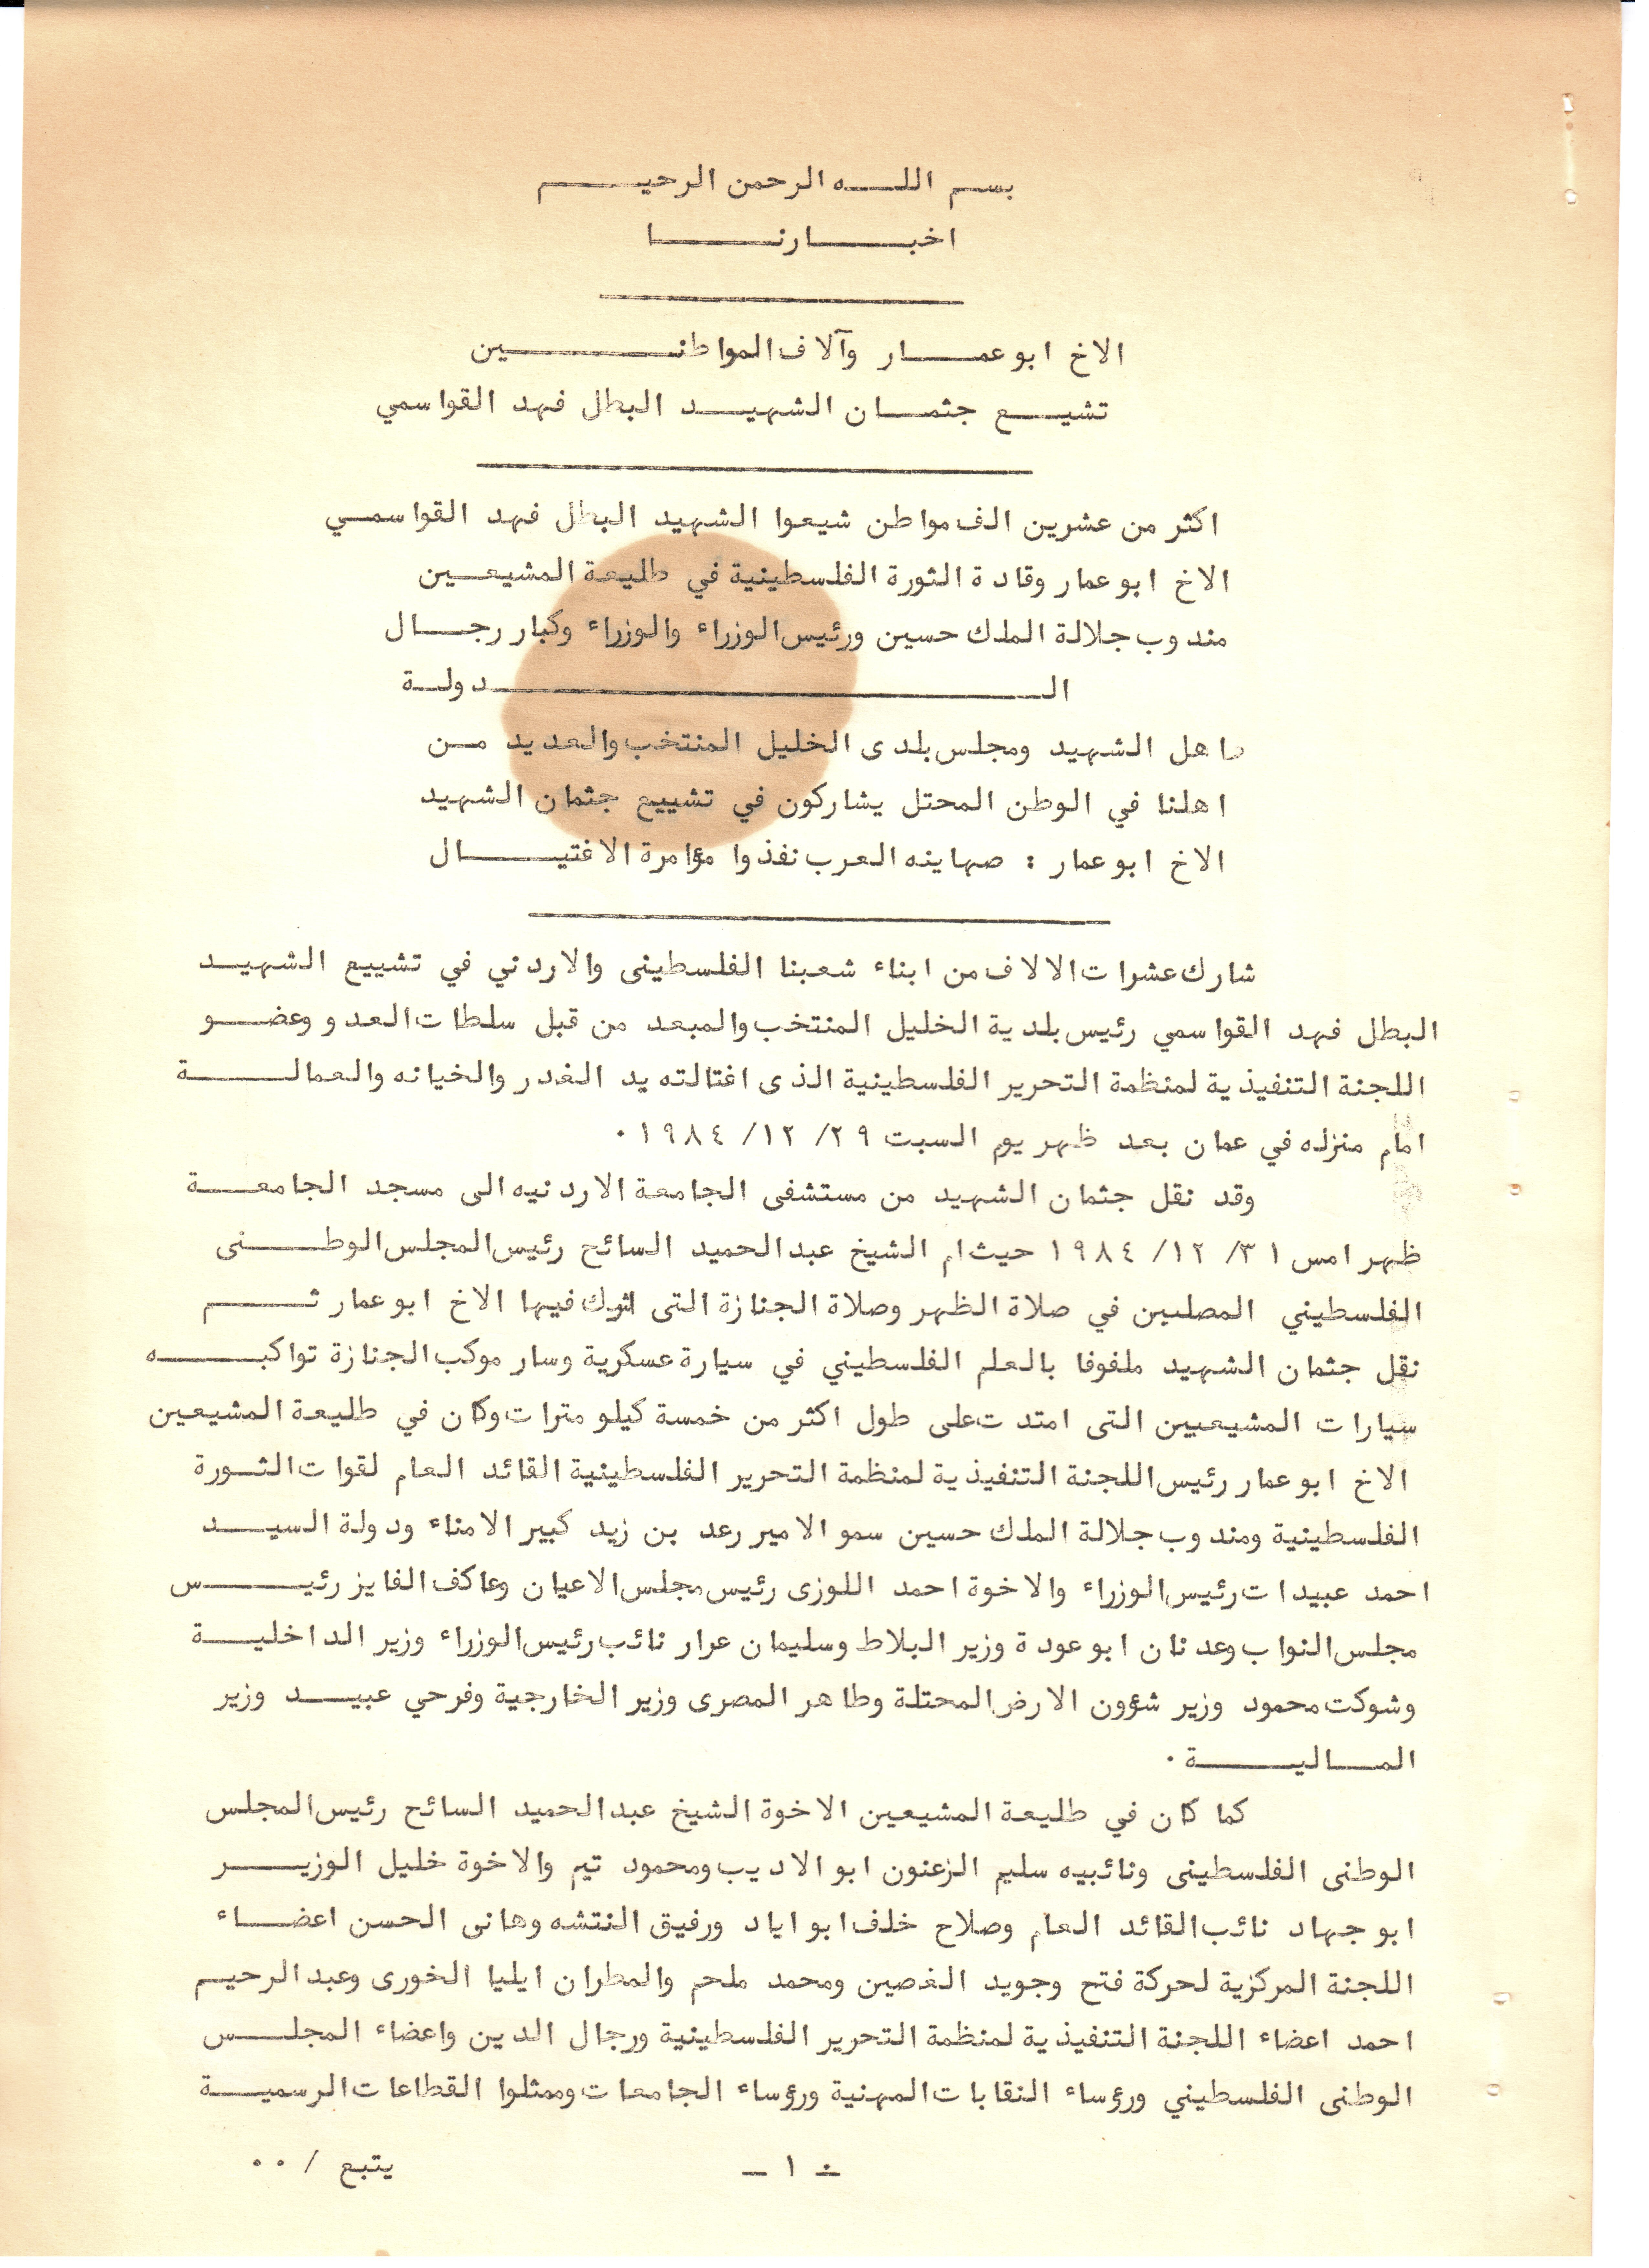 بسم الله الرحمن الرحيم
اخبارنا
الاخ ابو عمار وآلاف المواطنين
تشيع جثمان الشهيد البطل فهد القواسمي
اكثر من عشرين الف مواطن شيعوا الشهيد البطل فهد القواسمي
الاخ ابو عمار وقادة الثورة الفلسطينية في طليعة المشيعين
مندوب جلالة الملك حسين ورئيس الوزراء والوزراء وكبار رجال
الدولة
اهل الشهيد ومجلس بلدى الخليل المنتخب والعديد من
اهلنا في الوطن المحتل يشاركون في تشييع جثمان الشهيد
الاخ ابو عمار : صهاينه العرب نفذوا مؤامرة الاغتيال
شارك عشرات الالاف من ابناء شعبنا الفلسطينى والاردني في تشييع الشهيد
البطل فهد القواسمي رئيس بلدية الخليل المنتخب والمبعد من قبل سلطات العدو وعضو
اللجنة التنفيذية لمنظمة التحرير الفلسطينية الذى اغتالته يد الغدر والخيانه والعمالة
امام منزله في عمان بعد ظهر يوم السبت ٢٩/ ١٢/ ١٩٨٤ ٠
وقد نقل جثمان الشهيد من مستشفى الجامعة الاردنيه الى مسجد الجامعة
ظهر امس ٣١/ ١٢/ ١٩٨٤ حيث ام الشيخ عبد الحميد السائح رئيس المجلس الوطنى
الفلسطيني المصلين في صلاة الظهر وصلاة الجنازة التى فيها الاخ ابو عمار ثم
نقل جثمان الشهيد ملفوفا بالعلم الفلسطيني في سيارة عسكرية وسار موكب الجنازة تواكبه
سيارات المشيعيين التى امتدت على طول اكثر من خمسة كيلو مترات وكان في طليعة المشيعين
الاخ ابو عمار رئيس اللجنة التنفيذية لمنظمة التحرير الفلسطينية القائد العام لقوات الثورة
الفلسطينية ومندوب جلالة الملك حسين سمو الامير رعد بن زيد كبير الامناء ودولة السيد
احمد عبيدات رئيس الوزراء والاخوة احمد اللوزى رئيس مجلس الاعيان وعاكف الفايز رئيس
مجلس النواب وعدنان ابو عودة وزير البلاط وسليمان عرار نائب رئيس الوزراء وزير الداخلية
وشوكت محمود وزير شؤون الارض المحتلة وطاهر المصرى وزير الخارجية وفرحي عبيد وزير
المالية ٠
كما كان في طليعة المشيعين الاخوة الشيخ عبد الحميد السائح رئيس المجلس
الوطنى الفلسطينى ونائبيه سليم الزعنون ابو الاديب ومحمود تيم والاخوة خليل الوزير
ابو جهاد نائب القائد العام وصلاح خلف ابو اياد ورفيق النتشه وهانى الحسن اعضاء
اللجنة المركزية لحركة فتح وجويد الغصين ومحمد ملحم والمطران ايليا الخورى وعبد الرحيم
احمد اعضاء اللجنة التنفيذية لمنظمة التحرير الفلسطينية ورجال الدين واعضاء المجلس
الوطنى الفلسطيني ورؤساء النقابات المهنية ورؤساء الجامعات وممثلوا القطاعات الرسمية
- ١ -
يتبع / ٠٠